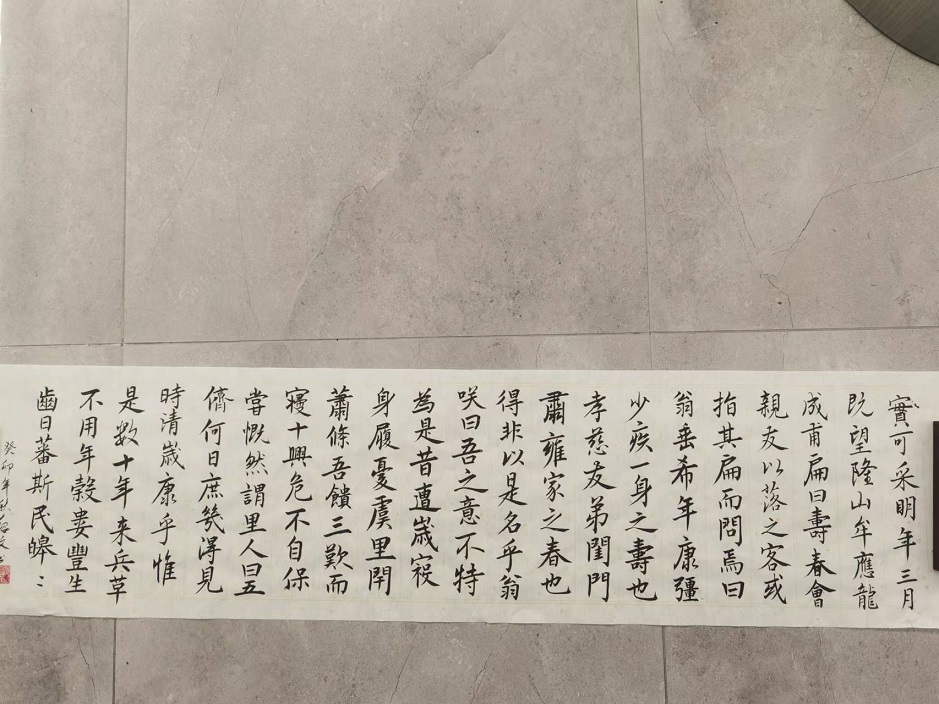 實可采明年三月
既望隆山牟應龍
成甫扁曰壽春會
親友以落之客或
指其扁而問焉曰
翁垂希年康彊
少疾一身之壽也
孝慈友弟閨門
肅雍家之春也
得非以是名乎翁
咲曰吾之意不特
為是昔遭歲祲
身履憂虞里閈
蕭條吾饋三歎而
寢十興危不自保
嘗慨然謂里人曰五
儕何日庶幾淂見
時清歲康乎惟
是数十年来兵革
不用年穀婁豐生
齒日蕃斯民皞〻
癸卯年秋